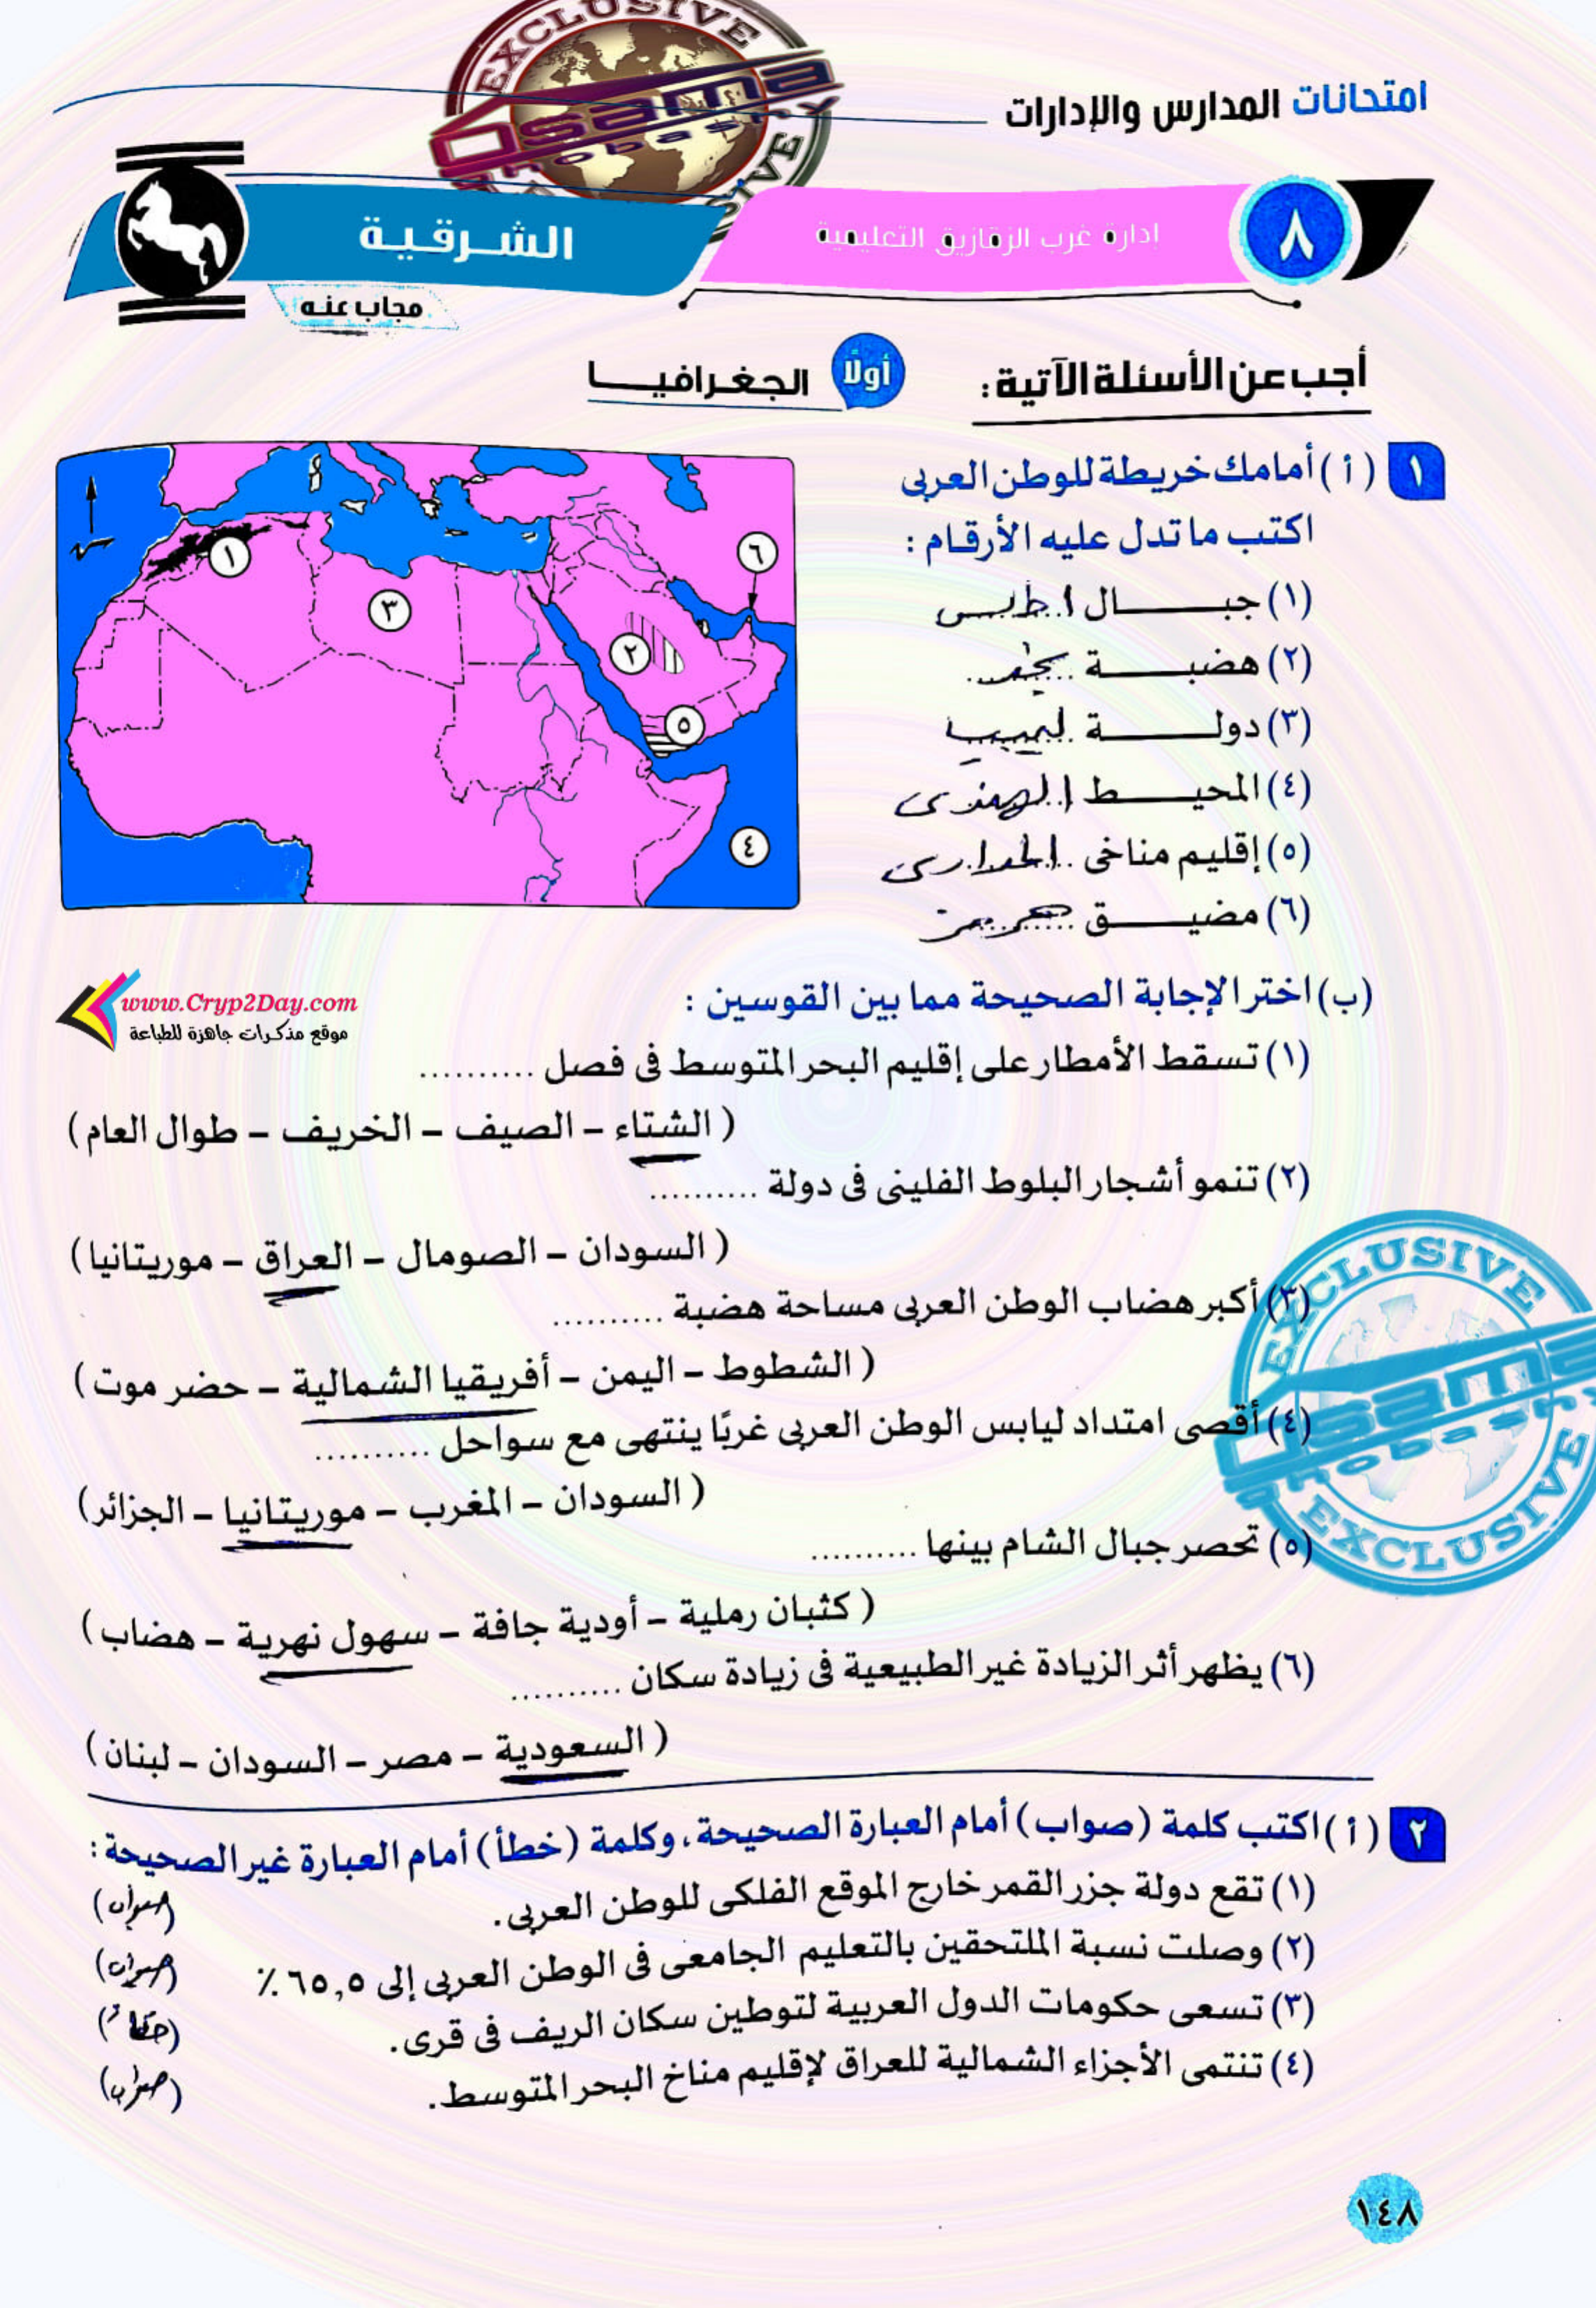 امتحانات المدارس والإدارات
٨
إدارة غرب الزقازيق التعليمية
الشرقية
مجاب عنه
أجب عن الأسئلة الآتية:
أولًا الجغرافيا
١ (أ) أمامك خريطة للوطن العربى
اكتب ما تدل عليه الأرقام :
(١) جبال أطلس
(٢) هضبة نجد
(٣) دولة ليبيا
(٤) المحيط الهندى
(٥) إقليم مناخى المدارى
(٦) مضيق هرمز
١
٢
٣
٤
٥
٦
www.Cryp2Day.com
موقع مذكرات جاهزة للطباعة
(ب) اختر الإجابة الصحيحة مما بين القوسين :
(١) تسقط الأمطار على إقليم البحر المتوسط فى فصل ..........
( الشتاء – الصيف – الخريف – طوال العام )
(٢) تنمو أشجار البلوط الفلينى فى دولة ..........
( السودان – الصومال – العراق – موريتانيا )
(٣) أكبر هضاب الوطن العربى مساحة هضبة ..........
( الشطوط – اليمن – أفريقيا الشمالية – حضر موت )
(٤) أقصى امتداد ليابس الوطن العربى غربًا ينتهى مع سواحل ..........
( السودان – المغرب – موريتانيا – الجزائر )
(٥) تحصر جبال الشام بينها ..........
( كثبان رملية – أودية جافة – سهول نهرية – هضاب )
(٦) يظهر أثر الزيادة غير الطبيعية فى زيادة سكان ..........
( السعودية – مصر – السودان – لبنان )
٢ (أ) اكتب كلمة (صواب) أمام العبارة الصحيحة، وكلمة (خطأ) أمام العبارة غير الصحيحة :
(١) تقع دولة جزر القمر خارج الموقع الفلكى للوطن العربى. (صواب)
(٢) وصلت نسبة الملتحقين بالتعليم الجامعى فى الوطن العربى إلى ٦٥,٥ ٪ (صواب)
(٣) تسعى حكومات الدول العربية لتوطين سكان الريف فى قرى. (خطأ)
(٤) تنتمى الأجزاء الشمالية للعراق لإقليم مناخ البحر المتوسط. (صواب)
١٤٨
EXCLUSIVE
Osama
EXCLUSIVE